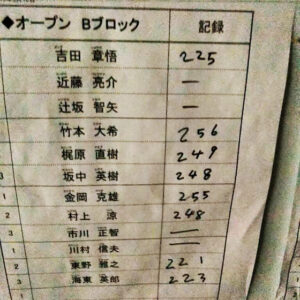 ◆オープン Bブロック 記録
吉田 章悟 225
近藤 亮介 —
辻坂 智矢 —
竹本 大希 256
梶原 直樹 249
3 坂中 英樹 248
1 金岡 克雄 255
2 村上 涼 248
3 市川 正智 —
1 川村 信夫 —
2 東野 雅之 221
3 海東 英郎 223